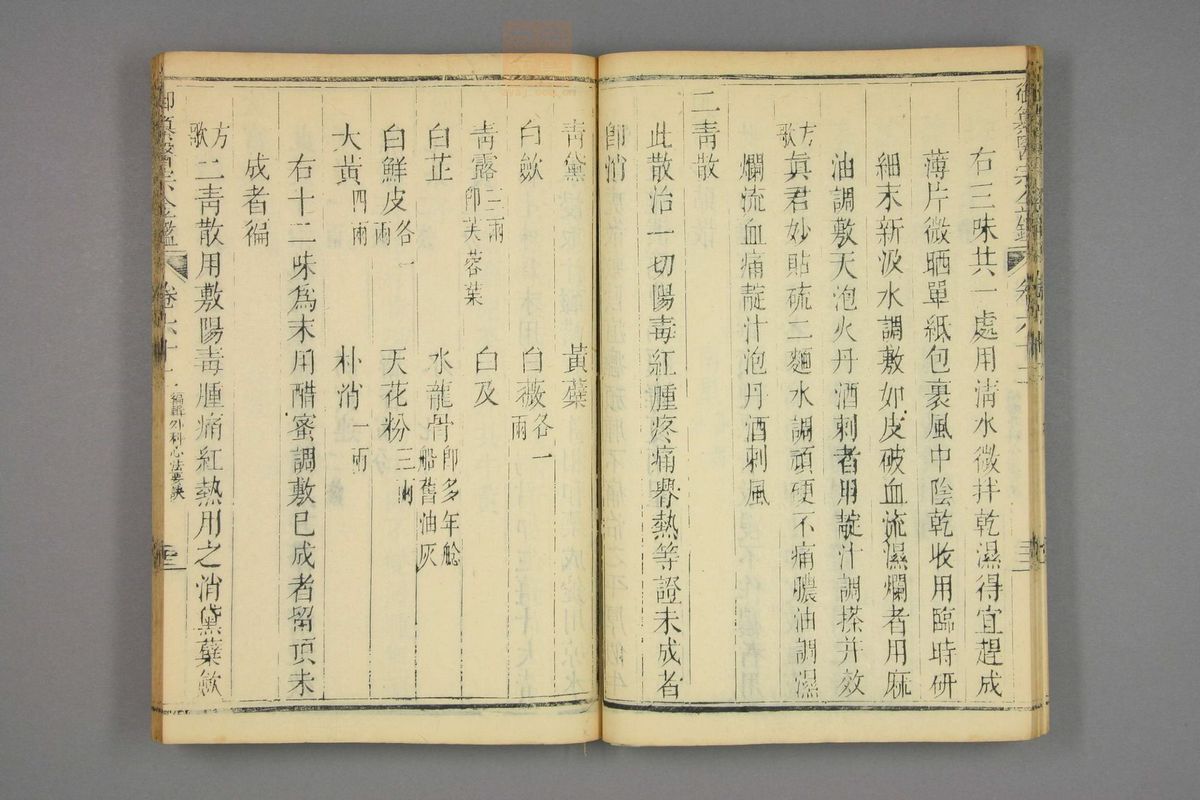 右三味共一處用清水微拌乾濕得宜趕成
薄片微晒單紙包裹風中陰乾收用臨時研
細末新汲水調敷如皮破血流濕爛者用麻
油調敷天泡火丹酒刺者用靛汁調搽并效
方歌 眞君妙貼硫二麵水調頑硬不痛膿油調濕
爛流血痛靛汁泡丹酒刺風
二青散
此散治一切陽毒紅腫疼痛臖熱等證未成者
卽消
青黛 黃蘗
白歛 白薇各一兩
青露三兩卽芙蓉葉 白及
白芷 水龍骨卽多年艌船舊油灰
白鮮皮各一兩 天花粉三兩
大黃四兩 朴消一兩
右十二味爲末用醋蜜調敷已成者留頂未
成者徧
方歌 二青散用敷陽毒腫痛紅熱用之消黛蘗歛
御纂醫宗金鑑 卷六十二 編輯外科心法要訣